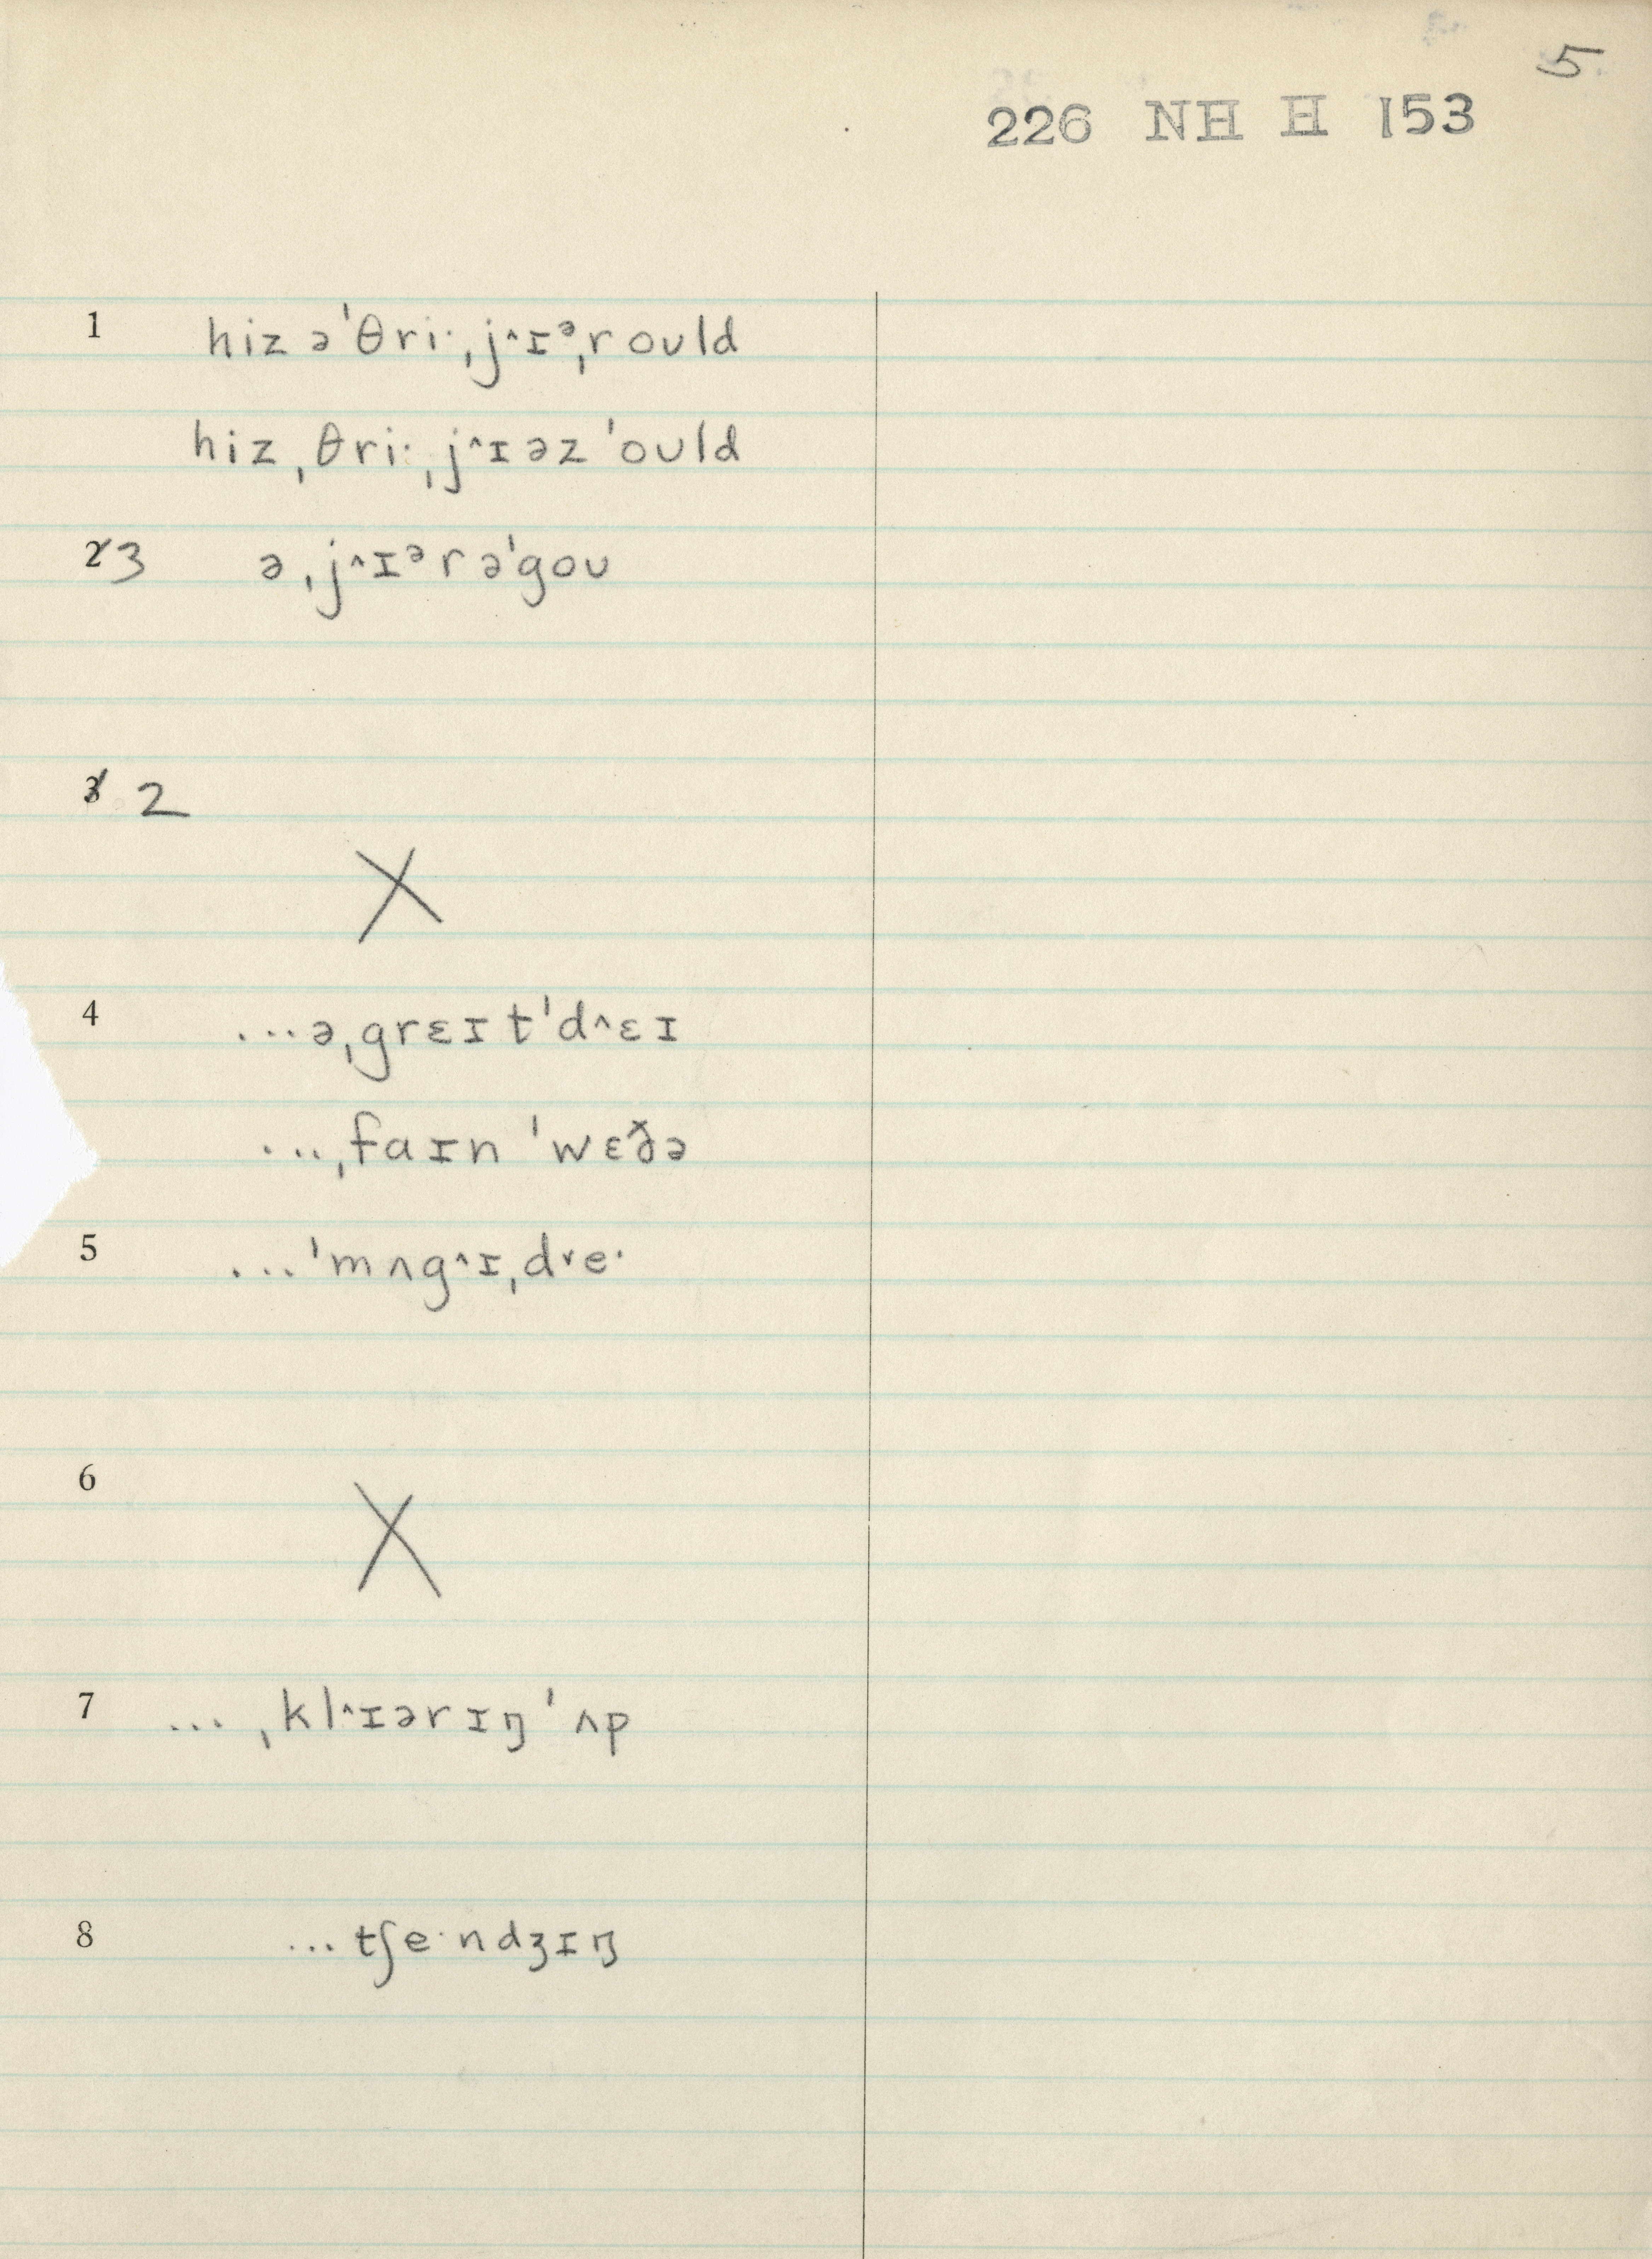 5.
226 NH H 153
1 hiz ə ˈθriˑ ˌj˄ɪᵊˌr oʊld
hiz ˌθriˑ ˌj˄ɪəz ˈoʊld
2 3 ə ˌj˄ɪᵊr əˈgoʊ
3 2
X
4 ...ə ˌgrɛɪt ˈd˄ɛɪ
..., ˌfaɪn ˈwɛðə
5 ...ˈmʌg˄ɪ ˌd˅eˑ
6
X
7 ... ˌkl˄ɪərɪŋ ˈʌp
8 ...tʃeˑndʒɪŋ